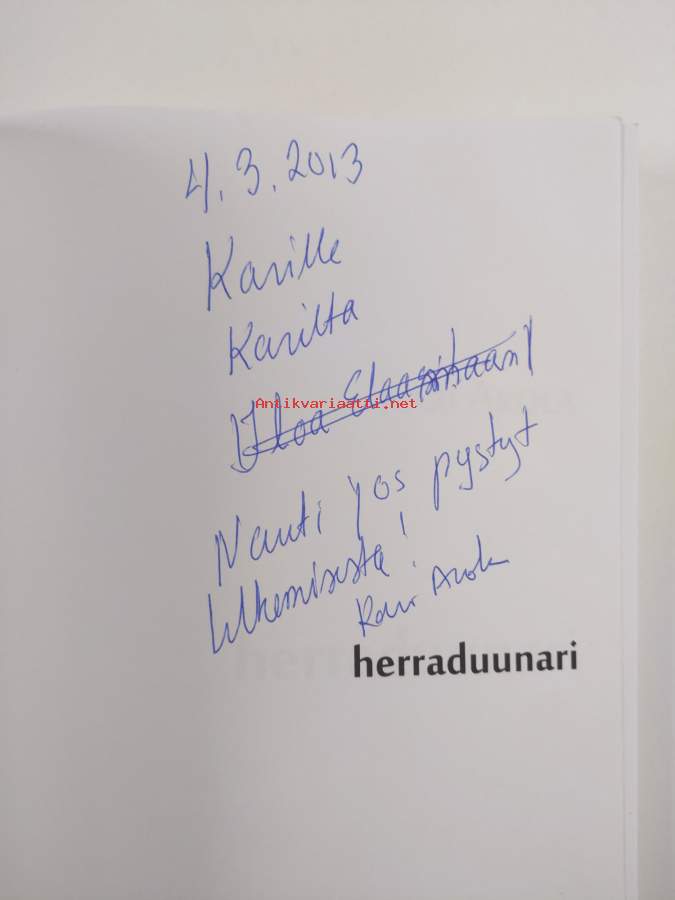 4.3.2013
Karille
Karilta
Iloa Elaamaan!
Antikvariaatti.net
Nauti jos pystyt
lukemisesta!
Kari Arola
herraduunari